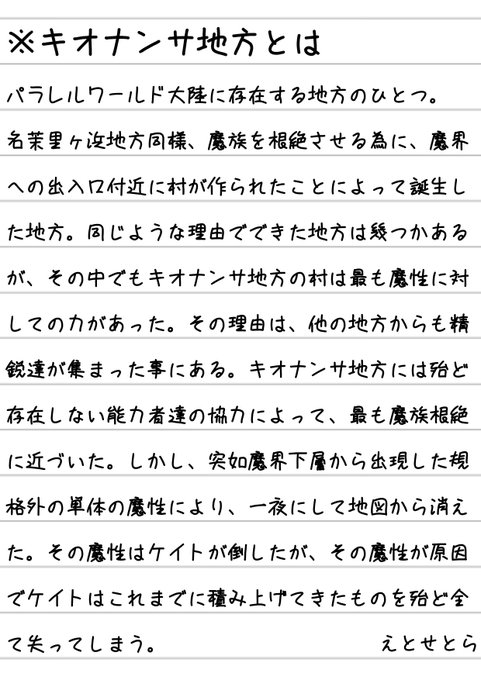 ※キオナンサ地方とは
パラレルワールド大陸に存在する地方のひとつ。
名茉里ヶ浜地方同様、魔族を根絶させる為に、魔界
への出入口付近に村が作られたことによって誕生し
た地方。同じような理由でできた地方は幾つかある
が、その中でもキオナンサ地方の村は最も魔性に対
しての力があった。その理由は、他の地方からも精
鋭達が集まった事にある。キオナンサ地方には殆ど
存在しない能力者達の協力によって、最も魔族根絶
に近づいた。しかし、突如魔界下層から出現した規
格外の単体の魔性により、一夜にして地図から消え
た。その魔性はケイトが倒したが、その魔性が原因
でケイトはこれまでに積み上げてきたものを殆ど全
て失ってしまう。 えとせとら